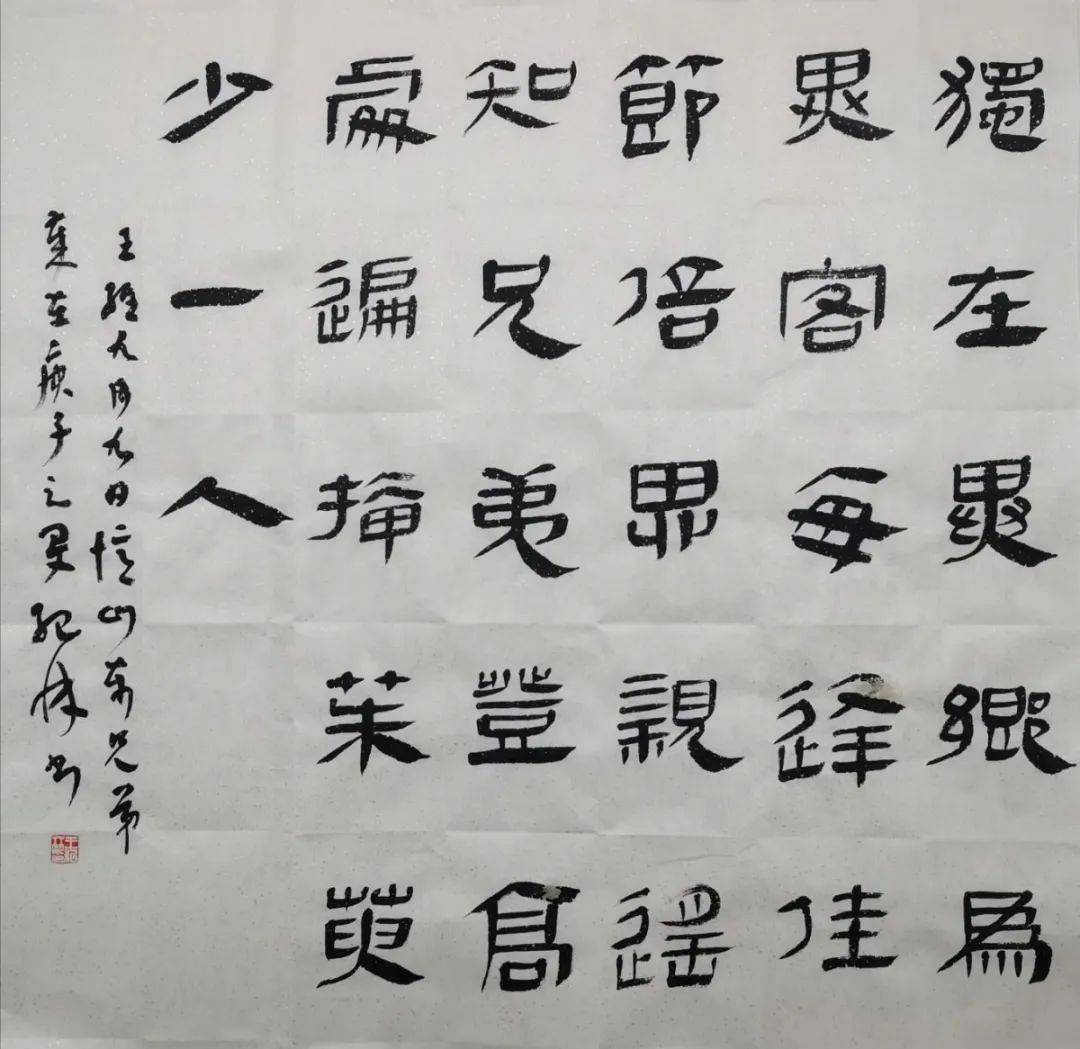 獨在異鄉爲
異客每逢佳
節倍思親遙
知兄弟登高
處遍插茱萸
少一人
王維九月九日憶山東兄弟
歲在庚子之夏 书